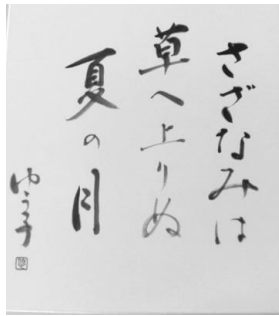 さざなみは
草へ上りぬ
夏の月
ゆう子